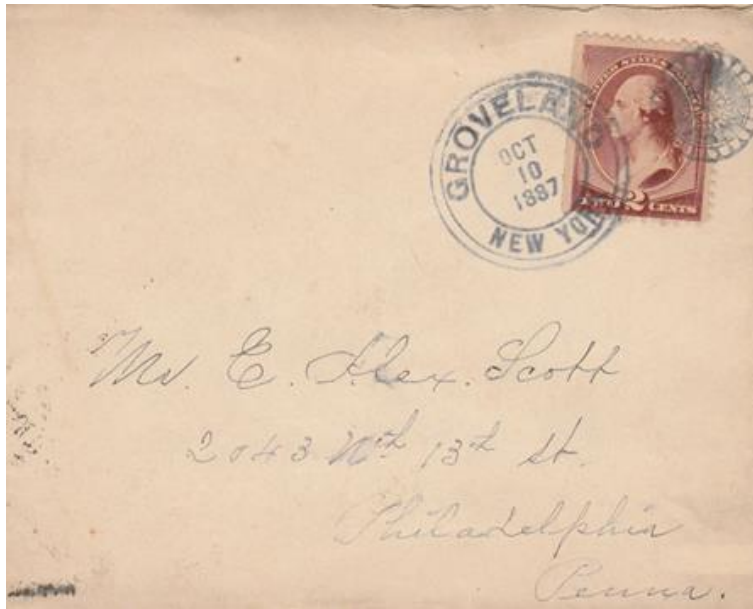 GROVELAND
OCT
10
1887
NEW YORK
UNITED STATES
TWO 2 CENTS
Mr. E. Alex. Scott
2043 Nth 13th St.
Philadelphia
Penna.